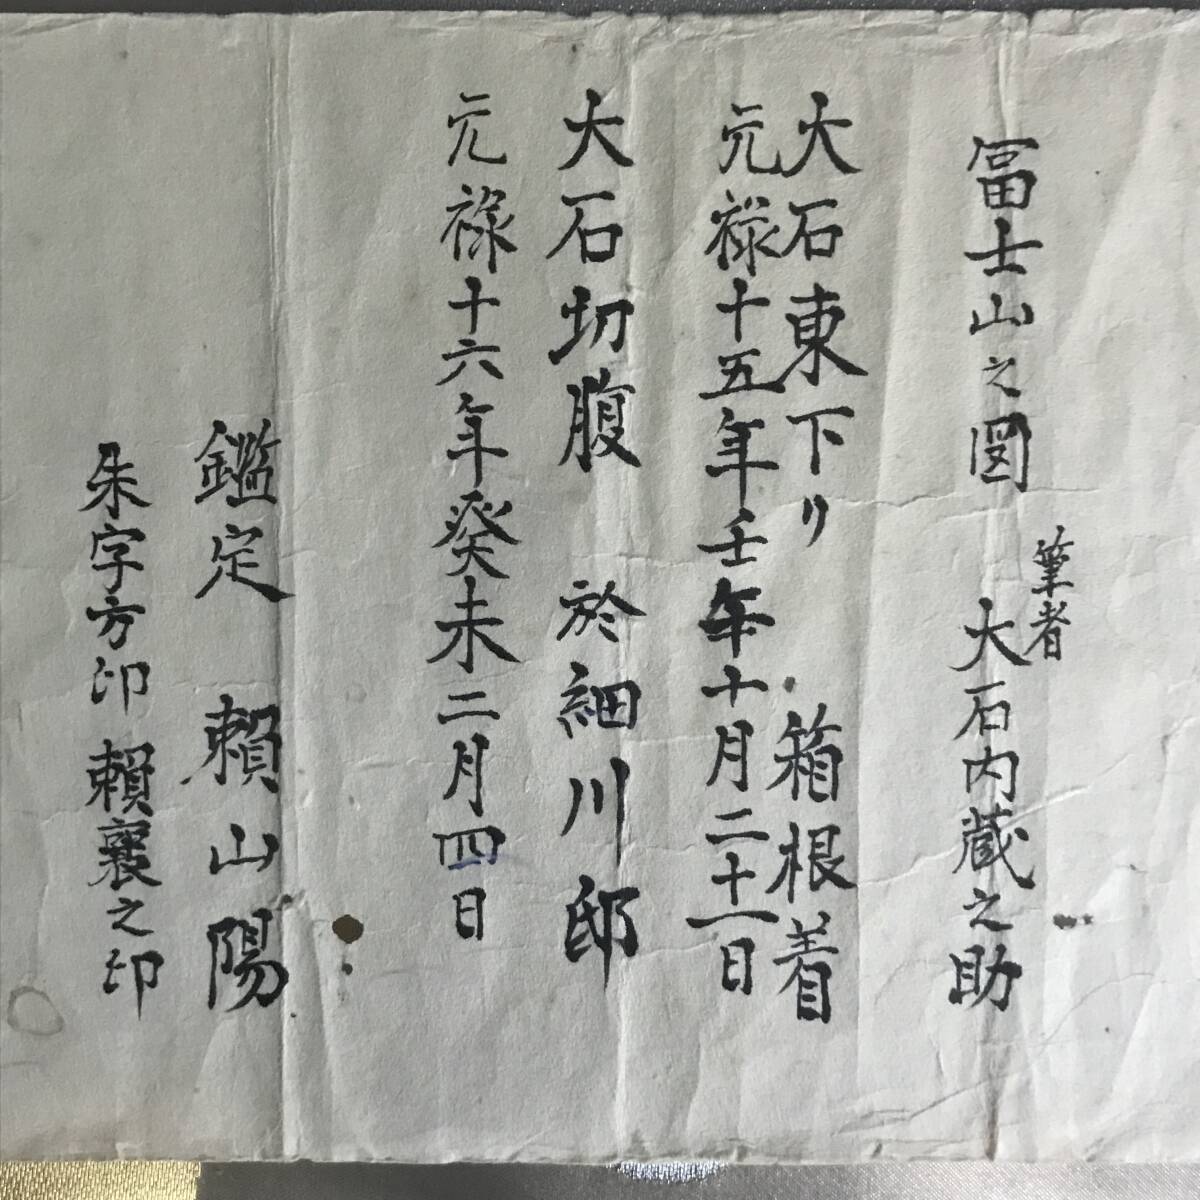 冨士山之図
筆者
大石内蔵之助
大石東下リ 箱根着
元禄十五年壬年十月二十一日
大石切腹 於細川邸
元禄十六年癸未二月四日
鑑定 頼山陽
朱字方印 頼襄之印